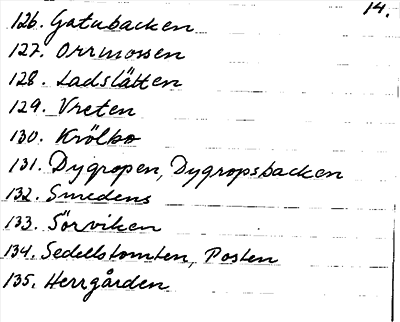 14.
126. Gatubacken
127. Orrmossen
128. Ladslätten
129. Vreten
130. Krölbo
131. Dygropen, Dygropsbacken
132. Smedens
133. Sörviken
134. Sedelstomten, Posten
135. Herrgården